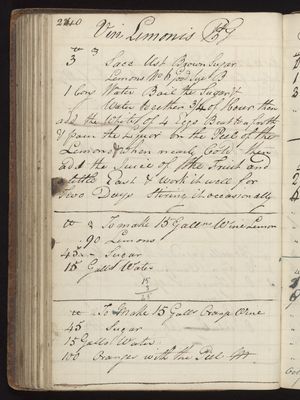 240
Vini Limonis
3 Sacc Ust Brown Sugar
Lemons No 6
1 Con Water Boil the Sugar &
Water together 3/4 of Hour then
add the Whites of 4 Eggs Beat to a froth
& pour the Liquor on the Peel of the
Lemons & when nearly Cold then
add the Juice of the Fruit and
a little Yeast & Work it well for
Two Days Stiring it occasionally
To make 15 Gallons Wine Lemon
90 Lemons
45 Sugar
15 Galls Water
15
3
45
To Make 15 Galls Orange Wine
45 Sugar
15 Galls Water
100 Oranges with the Peel